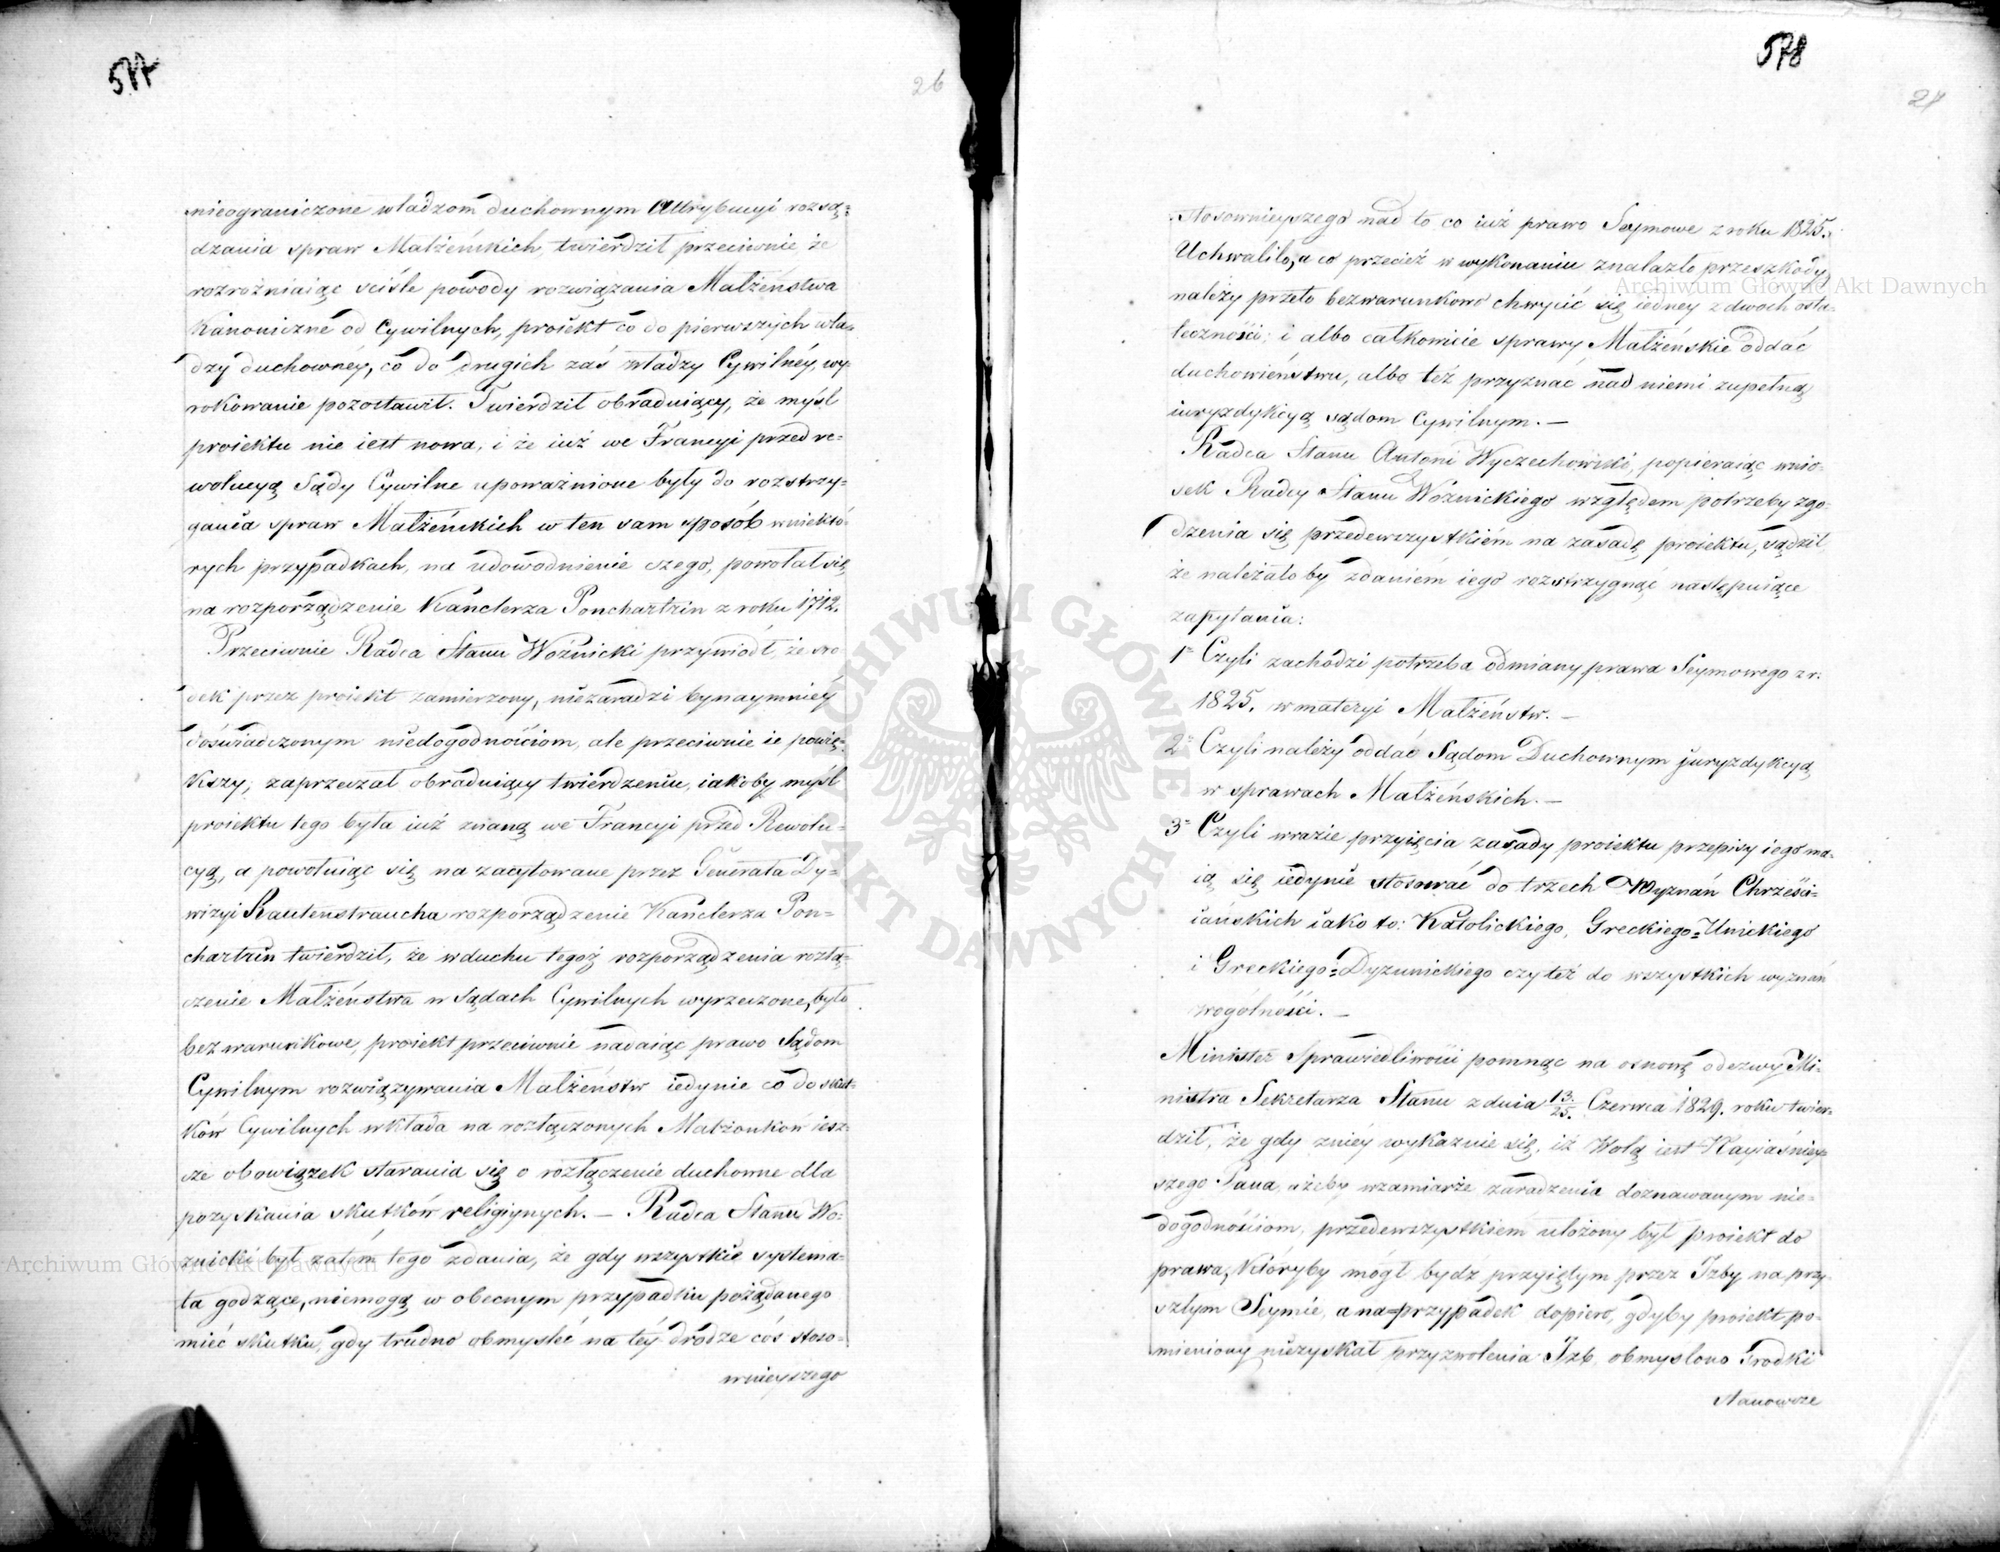 577
26
nieograniczone władzom duchownym Attrybucyi rozsą=
dzania spraw Małżeńskich, twierdził przeciwnie że
rozrożniaiąc ściśle powody rozwiązania Małżeństwa
Kanoniczne od Cywilnych, proiekt co do pierwszych wła-
dzy duchownéy, co do drugich zaś władzy Cywilnéy, wy-
rokowanie pozostawił. Twierdził obraduiący, że myśl
proiektu nie iest nowa, i że iuż we Francyi przed re-
wolucyą Sądy Cywilne upoważnione były do rozstrzy-
gania spraw Małżeńskich w ten sam sposób w niektó-
rych przypadkach, na udowodnienie czego, powołał się
na rozporządzenie Kanclerza Ponchartrin z roku 1712.
Przeciwnie Radca Stanu Woźnicki przywiódł, że śro-
dek przez proiekt zamierzony, niezaradzi bynaymniéy
doświadczonym niedogodnościom, ale przeciwnie ie powię-
kszy; zaprzeczał obraduiący twierdzeniu, iakoby myśl
proiektu tego była iuż znaną we Francyi przed Rewolu-
cyą, a powołuiąc się na zacytowane przez Generała Dy-
wizyi Rautenstraucha rozporządzenie Kanclerza Pon=
chartrin twierdził, że w duchu tegoż rozporządzenia rozłą-
czenie Małżeństwa w Sądach Cywilnych wyrzeczone, było
bezwarunkowe, proiekt przeciwnie nadaiąc prawo Sądom
Cywilnym rozwiązywania Małżeństw iedynie co do skut-
ków Cywilnych wkłada na rozłączonych Małżonków iesz-
cze obowiązek starania się o rozłączenie duchowne dla
pozyskania skutków religiynych. — Radca Stanu Wo-
źnicki był zatem tego zdania, że gdy wszystkie systema-
ta godzące, niemogą w obecnym przypadku pożądanego
mieć skutku, gdy trudno obmyśleć na téy drodze coś stoso-
wnieyszego
578
27
stosownieyszego nad to co iuż prawo Seymowe z roku 1825.
Uchwaliło, a co przecież w wykonaniu znalazło przeszkody,
należy przeto bezwarunkowo chwycić się iedney z dwoch osta-
teczności; i albo całkowicie sprawy Małżeńskie oddać
duchowieństwu, albo też przyznać nad niemi zupełną
iuryzdykcyą sądom Cywilnym. —
Radca Stanu Antoni Wyczechowski, popieraiąc wnio-
sek Radcy Stanu Woźnickiego względem potrzeby zgo-
dzenia się przedewszystkiém na zasadę proiektu, sądził,
że należałoby zdaniem iego rozstrzygnąć następuiące
zapytania:
1° Czyli zachodzi potrzeba odmiany prawa Seymowego z r.
1825. w materyi Małżeństw. —
2° Czyli należy oddać Sądom Duchownym juryzdykcyą
w sprawach Małżeńskich. —
3° Czyli w razie przyięcia zasady proiektu przepisy iego ma-
ią się iedynie stosować do trzech Wyznań Chrześci-
iańskich iako to: Katolickiego, Greckiego=Unickiego
i Greckiego=Dyzunickiego czy też do wszystkich wyznań
w ogólności. —
Minister Sprawiedliwości pomnąc na osnowę odezwy Mi-
nistra Sekretarza Stanu z dnia 13./25. Czerwca 1829. roku twier-
dził, że gdy z niéy wykazuie się, iż Wolą iest Nayiaśniey-
szego Pana, ażeby w zamiarze zaradzenia doznawanym nie-
dogodnościom, przedewszystkiém ułożony był proiekt do
prawa, któryby mógł bydz przyiętym przez Izby na przy-
szłym Seymie, a na=przypadek dopiero, gdyby proiekt po-
mieniony nieżyskał przyzwolenia Izb, obmyslono Srodki
stanowcze
Archiwum Główne Akt Dawnych
Archiwum Główne Akt Dawnych
ARCHIWUM GŁÓWNE AKT DAWNYCH